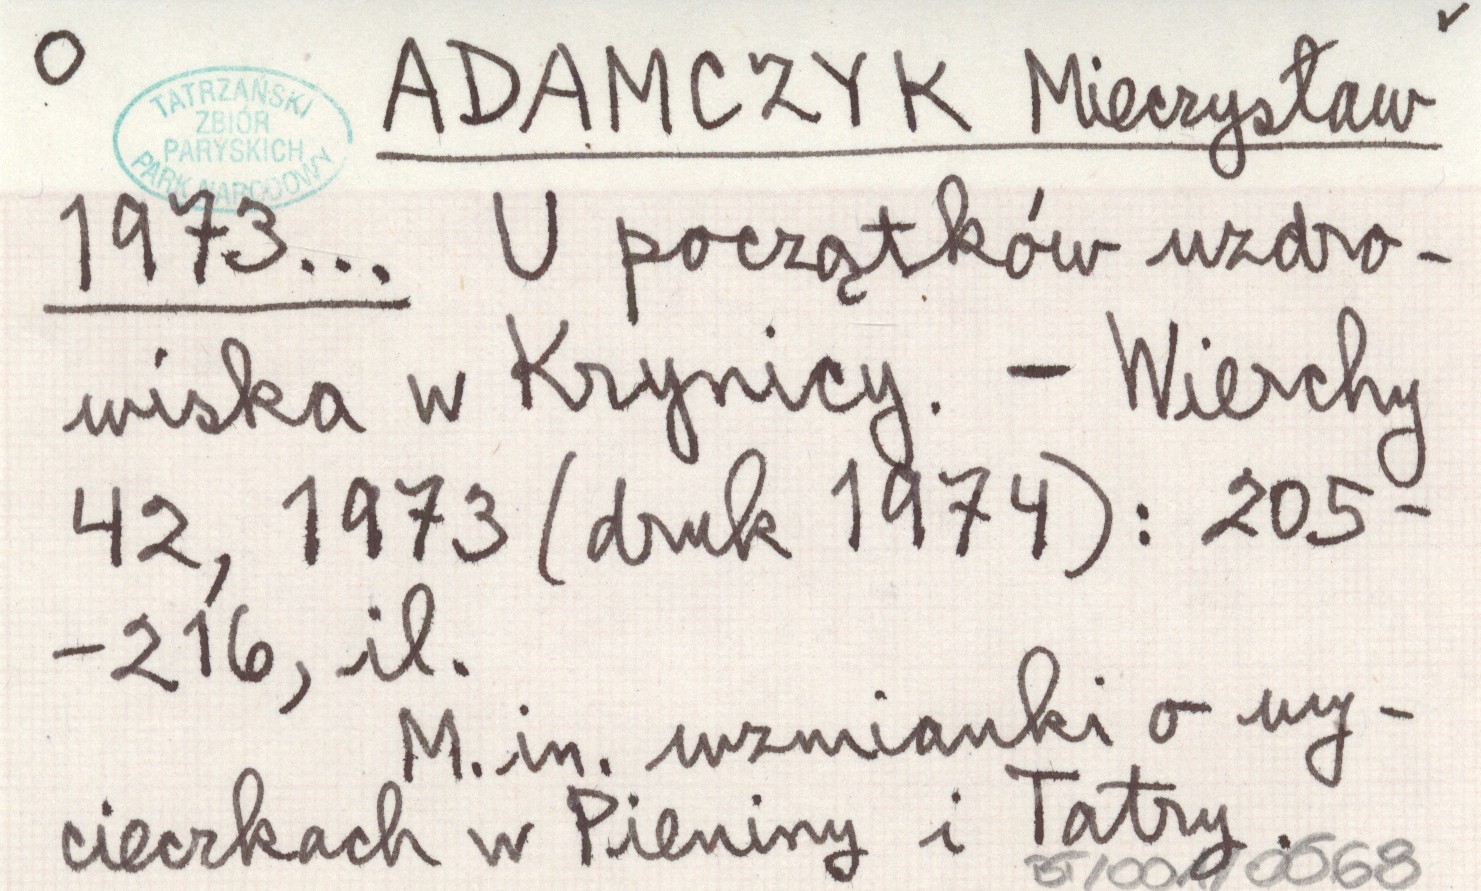 O ADAMCZYK Mieczysław ✓
TATRZAŃSKI
ZBIÓR
PARYSKICH
PARK NARODOWY
1973... U początków uzdro-
wiska w Krynicy. - Wierchy
42, 1973 (druk 1974): 205-
-216, il.
M. in. wzmianki o wy-
cieczkach w Pieniny i Tatry.